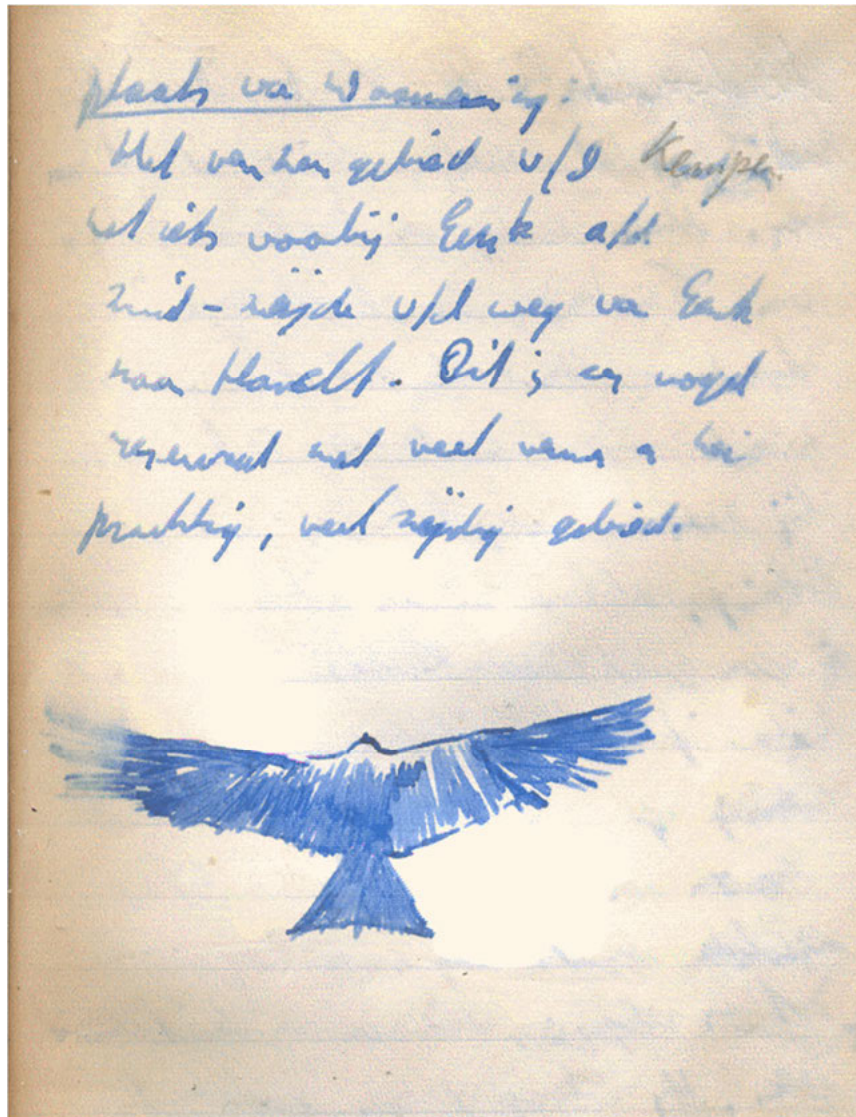 plaats va Waarneming:
Het vennen gebied v/d Kempen.
net iets voorbij Genk a/d
zuid-zijde v/d weg va Genk
naar Hasselt. Dit is een vogel
reservaat met veel venn
prachtig, veel zijdig gebied.